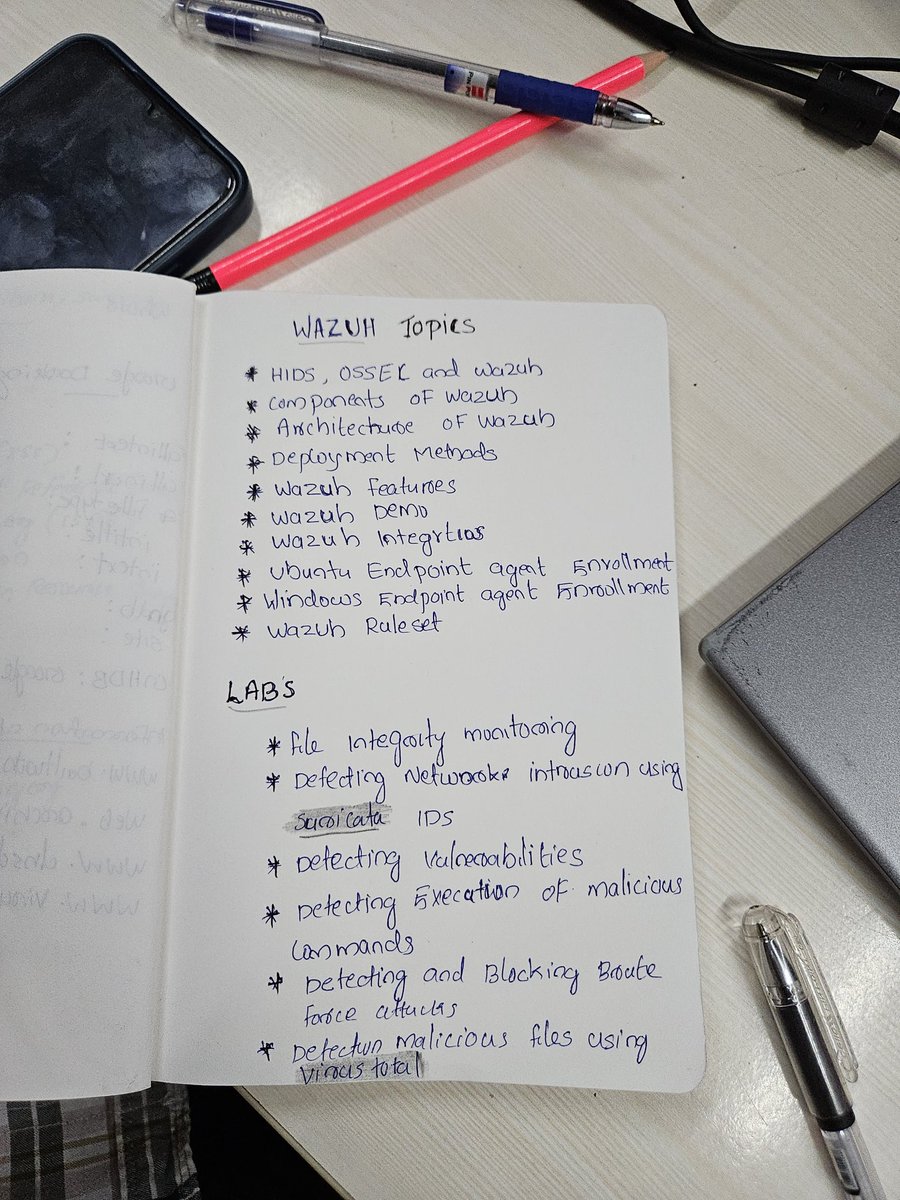 WAZUH Topics
* HIDS, OSSEC and Wazuh
* Components OF Wazuh
* Architecture OF Wazuh
* Deployment Methods
* Wazuh features
* Wazuh Demo
* Wazuh Integrtios
* Ubuntu Endpoint agent Enrollment
* Windows Endpoint agent Enrollment
* Wazuh Ruleset
LAB'S
* file Integrity monitoring
* Detecting Network intrusion using
Suricata IDS
* Detecting Vulnerabilities
* Detecting Execution OF malicious
Commands
* Detecting and Blocking Brute
force attacks
* Detectun malicious files using
Virus total